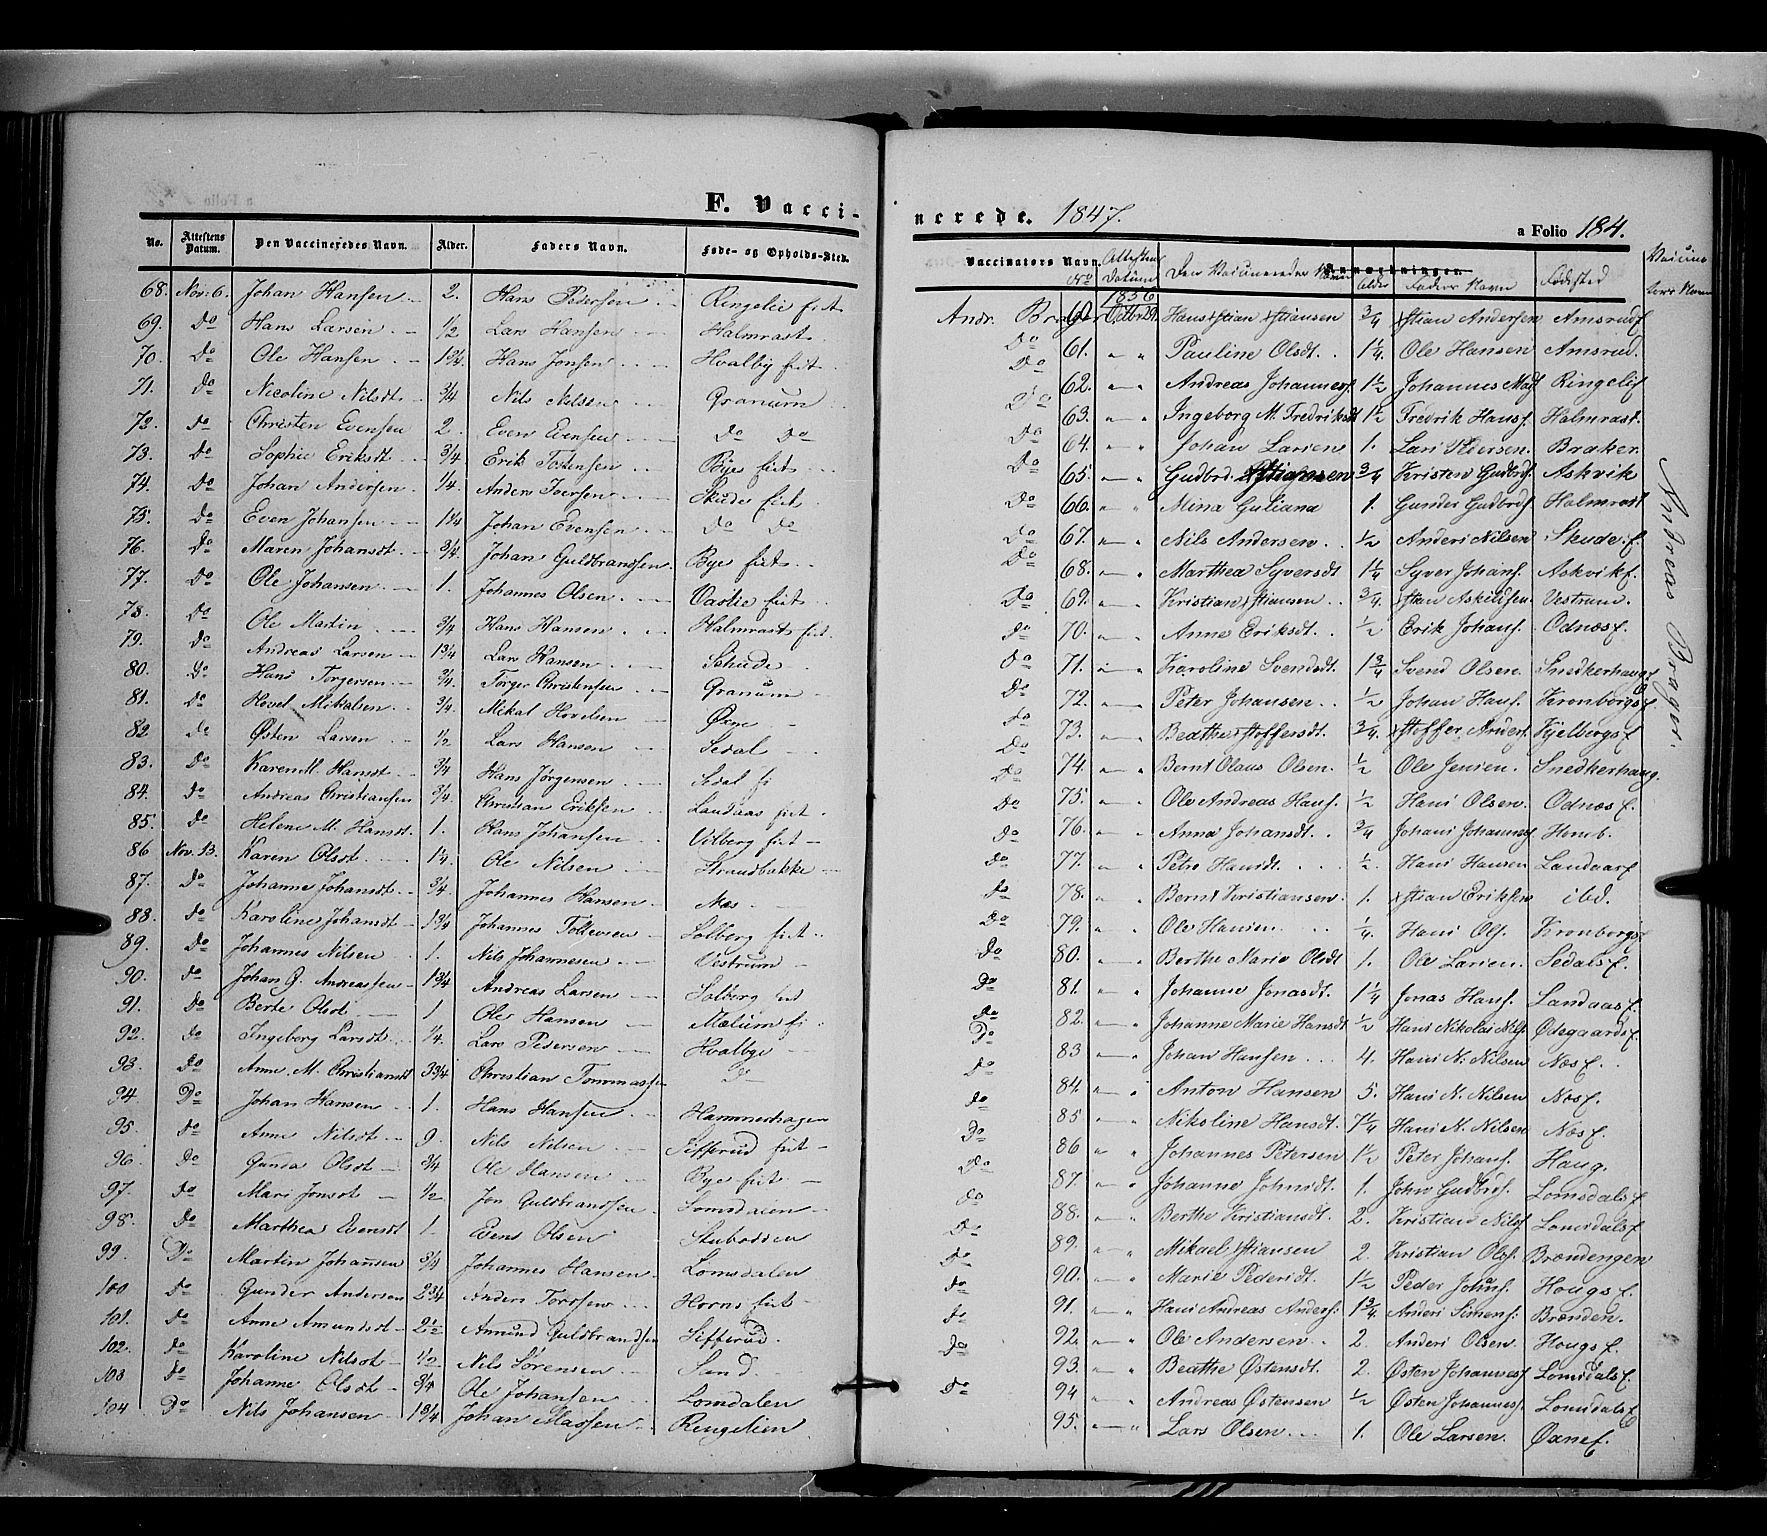 F. Vacci-
No. Attestens Datum. Den Vaccineredes Navn. Alder. Faders Navn. Føde- og Opholds-Sted.
68. Nov: 6. Johan Hansen 2. Hans Pedersen Ringelie fiet
69. Do Hans Larsen 1/2 Lars Hansen Halmrast
70. Do Ole Hansen 1 3/4 Hans Jonsen Hvalby fiet
71. Do Nicoline Nilsdt 3/4 Nils Nilsen Granum
72. Do Christen Evensen 2. Even Evensen Do Do
73. Do Sophie Eriksdt 3/4 Erik Tostensen Bye fiet
74. Do Johan Andersen 1/4. Anders Iversen Skude fiet
75. Do Even Johansen 1 3/4 Johan Evensen Do Do
76. Do Maren Johansdt 3/4. Johan Guldbrandsen Bye fiet
77. Do Ole Johansen 1. Johannes Olsen fiet
78. Do Ole Martin 3/4 Hans Hansen Halmrast fiet
79. Do Andreas Larsen 1 3/4 Lars Hansen Schude
80. Do Hans Torgersen 3/4. Torger Christensen Granum
81. Do Hovel Mikalsen 3/4. Mikal Hovelsen Øxne
82 do Østen Larsen 1/2 Lars Hansen Sedal
83. Do Karen M. Hansdt 3/4 Hans Jørgensen Sedal fi
84. Do Andreas Christiansen 3/4. Christian Eriksen Landaas fiet
85. Do Helene M. Hansdt. 1. Hans Johansen Vilberg fiet
86 Nov. 13. Karen Olsdt 1/4. Ole Nilsen Strandbakke
87. Do Johanne Johansdt 3/4. Johannes Hansen Næs
88. Do Karoline Johansdt 1 3/4 Johannes Tollevsen Solberg fiet
89. Do Johannes Nilsen 1. Nils Johannesen Vestrum
90. Do Johan G. Andreassen 1 3/4 Andreas Larsen Solberg fiet
91. Do Berte Olsdt 1 Ole Hansen Mælum fi
92. Do Ingeborg Larsdt 1/4. Lars Pedersen Hvalbye
93. Do Anne M. Christiansdt 3 3/4 Christian Tommassen Do
94 Do Johan Hansen 1. Hans Hansen Hammerhagen
95. Do Anne Nilsdt 9. Nils Nilsen Sifferud fiet
96. Do Gunda Olsdt 3/4 Ole Hansen Bye fiet
97. Do Mari Jonsdt 1/2 Jon Guldbrandsen Lomsdalen
98. Do Marthea Evensdt 1. Evens Olsen Stubodden
99. Do Martin Johannsen 3/4 Johannes Hansen Lomsdalen
100 Do Gunder Andersen 2 3/4 Anders Torssen Horns fiet
101. Do Anne Amundsdt 2 1/2 Amund Guldbrandsen Sifferud
102. Do Karoline Nilsdt 1/2 Nils Sørensen Sand
103 Do Johanne Olsdt 3/4 Ole Johansen Lomsdalen
104 Do Nils Johansen 1 3/4 Johan Massen Ringelien
nerede. 1847.
a Folio 184.
Vaccinators Navn. No Attestens Datum Den Vaccineredes Navn Anmærkninger. Alder Faders Navn Fødested Vaccinators Navn
1856
Andr. Brager 60. Octbr 29. Hans Xstian Xstiansen 3/4 Xstian Andersen Amsrudf
Do 61. " " Pauline Olsdt. 1 1/4. Ole Hansen Amsrud.
Do 62. " Andreas Johannesf. 1 1/2 Johannes Madf Ringelif
Do 63. " Ingeborg M. Fredriksdt 1 1/2 Fredrik Hansf. Halmrast.
Do 64. " Johan Larsen 1. Lars Braker.
Do 65. " Gudbrd. Xstiansen 3/4 Kristen Gudbrdf. Askvik
Do 66. " Mina Guliana 1. Gunder Gudbrdf Halmrast
Do 67. " Nils Andersen 1/2 Anders Nilsen Skudef.
Do 68. " Marthea Syversdt 1 1/4 Syver Johansf. Askvikf.
Do 69. " Kristian Xstiansen 3/4. Xstian Askelsen Vestrum.
Do 70. " Anne Eriksdt. 1/2 Erik Johansf. Odnæsf.
Do 71. " Karoline Svendsdt 1 3/4 Svend Olsen Snedkerhaugf
Do 72. " Peter Johansen 1/2 Johan Hansf. Kronborgsf.
Do 73. " Beathe Xstoffersdt. 3/4. Xstoffer Andersf. Kjelbergsf
Do 74. " Bernt Olaus Olsen. 1/2 Ole Jensen. Snedkerhaug.
Do 75. " Ole Andreas Hansf. 1/2 Hans Olsen. Odnæsf.
Do 76. " Anna Johansdt. 3/4 Johans Johannesf
Do 77. " Petro Hansdt. 1/2. Hans Hansen Landaasf
Do 78. " Bernt Kristiansen 1. Xstian Eriksen ibd.
Do 79. " Ole Hansen 1/4. Hans Olsf. Kronborgsf
Do 80. " Berthe Marie Olsdt 1. Ole Larsen. Sedalsf.
Do 81. " Johanne Jonasdt. 1 1/4 Jonas Hansf. Landaasf.
Do 82. " Johanne Marie Hansdt 1/2 Hans Nikolai Nilsf Ødegaardsf.
Do 83 " Johan Hansen 4. Hans N. Nilsen Næsf.
Do 84. " Anton Hansen 5. Hans N. Nilsen Næsf.
Do 85 " Nikoline Hansdt. 7 1/4 Hans N. Nilsen Næsf.
Do 86 " Johannes Petersen 1 1/2 Peter Johansf. Haug.
Do 87. " Johanne Johnsdt. 1. John Gudbrdsf. Lomsdalsf
Do 88. " Berthe Kristiansdt. 2. Kristian Nilsf Lomsdalsf.
Do 89. " Mikael Xstiansen 2. Kristian Olsf. Brændengen
Do 90. " Marie Pedersdt. 1 1/2 Peder Johnsf. Hougsf.
Do 91. " Hans Andreas Andersf: 1 3/4. Anders Simensf. Brænden.
Do 92. " Ole Andersen 2 Anders Olsen. Hougsf.
Do 93. " Beathe Østensdt. 2. Østen Johannesf Lomsdalsf.
Do 94 " Andreas Østensen 1/2 Østen Johannesf. Lomsdalsf
95. " Lars Olsen 1. Ole Larsen. Øxnef.
Andreas Brager.